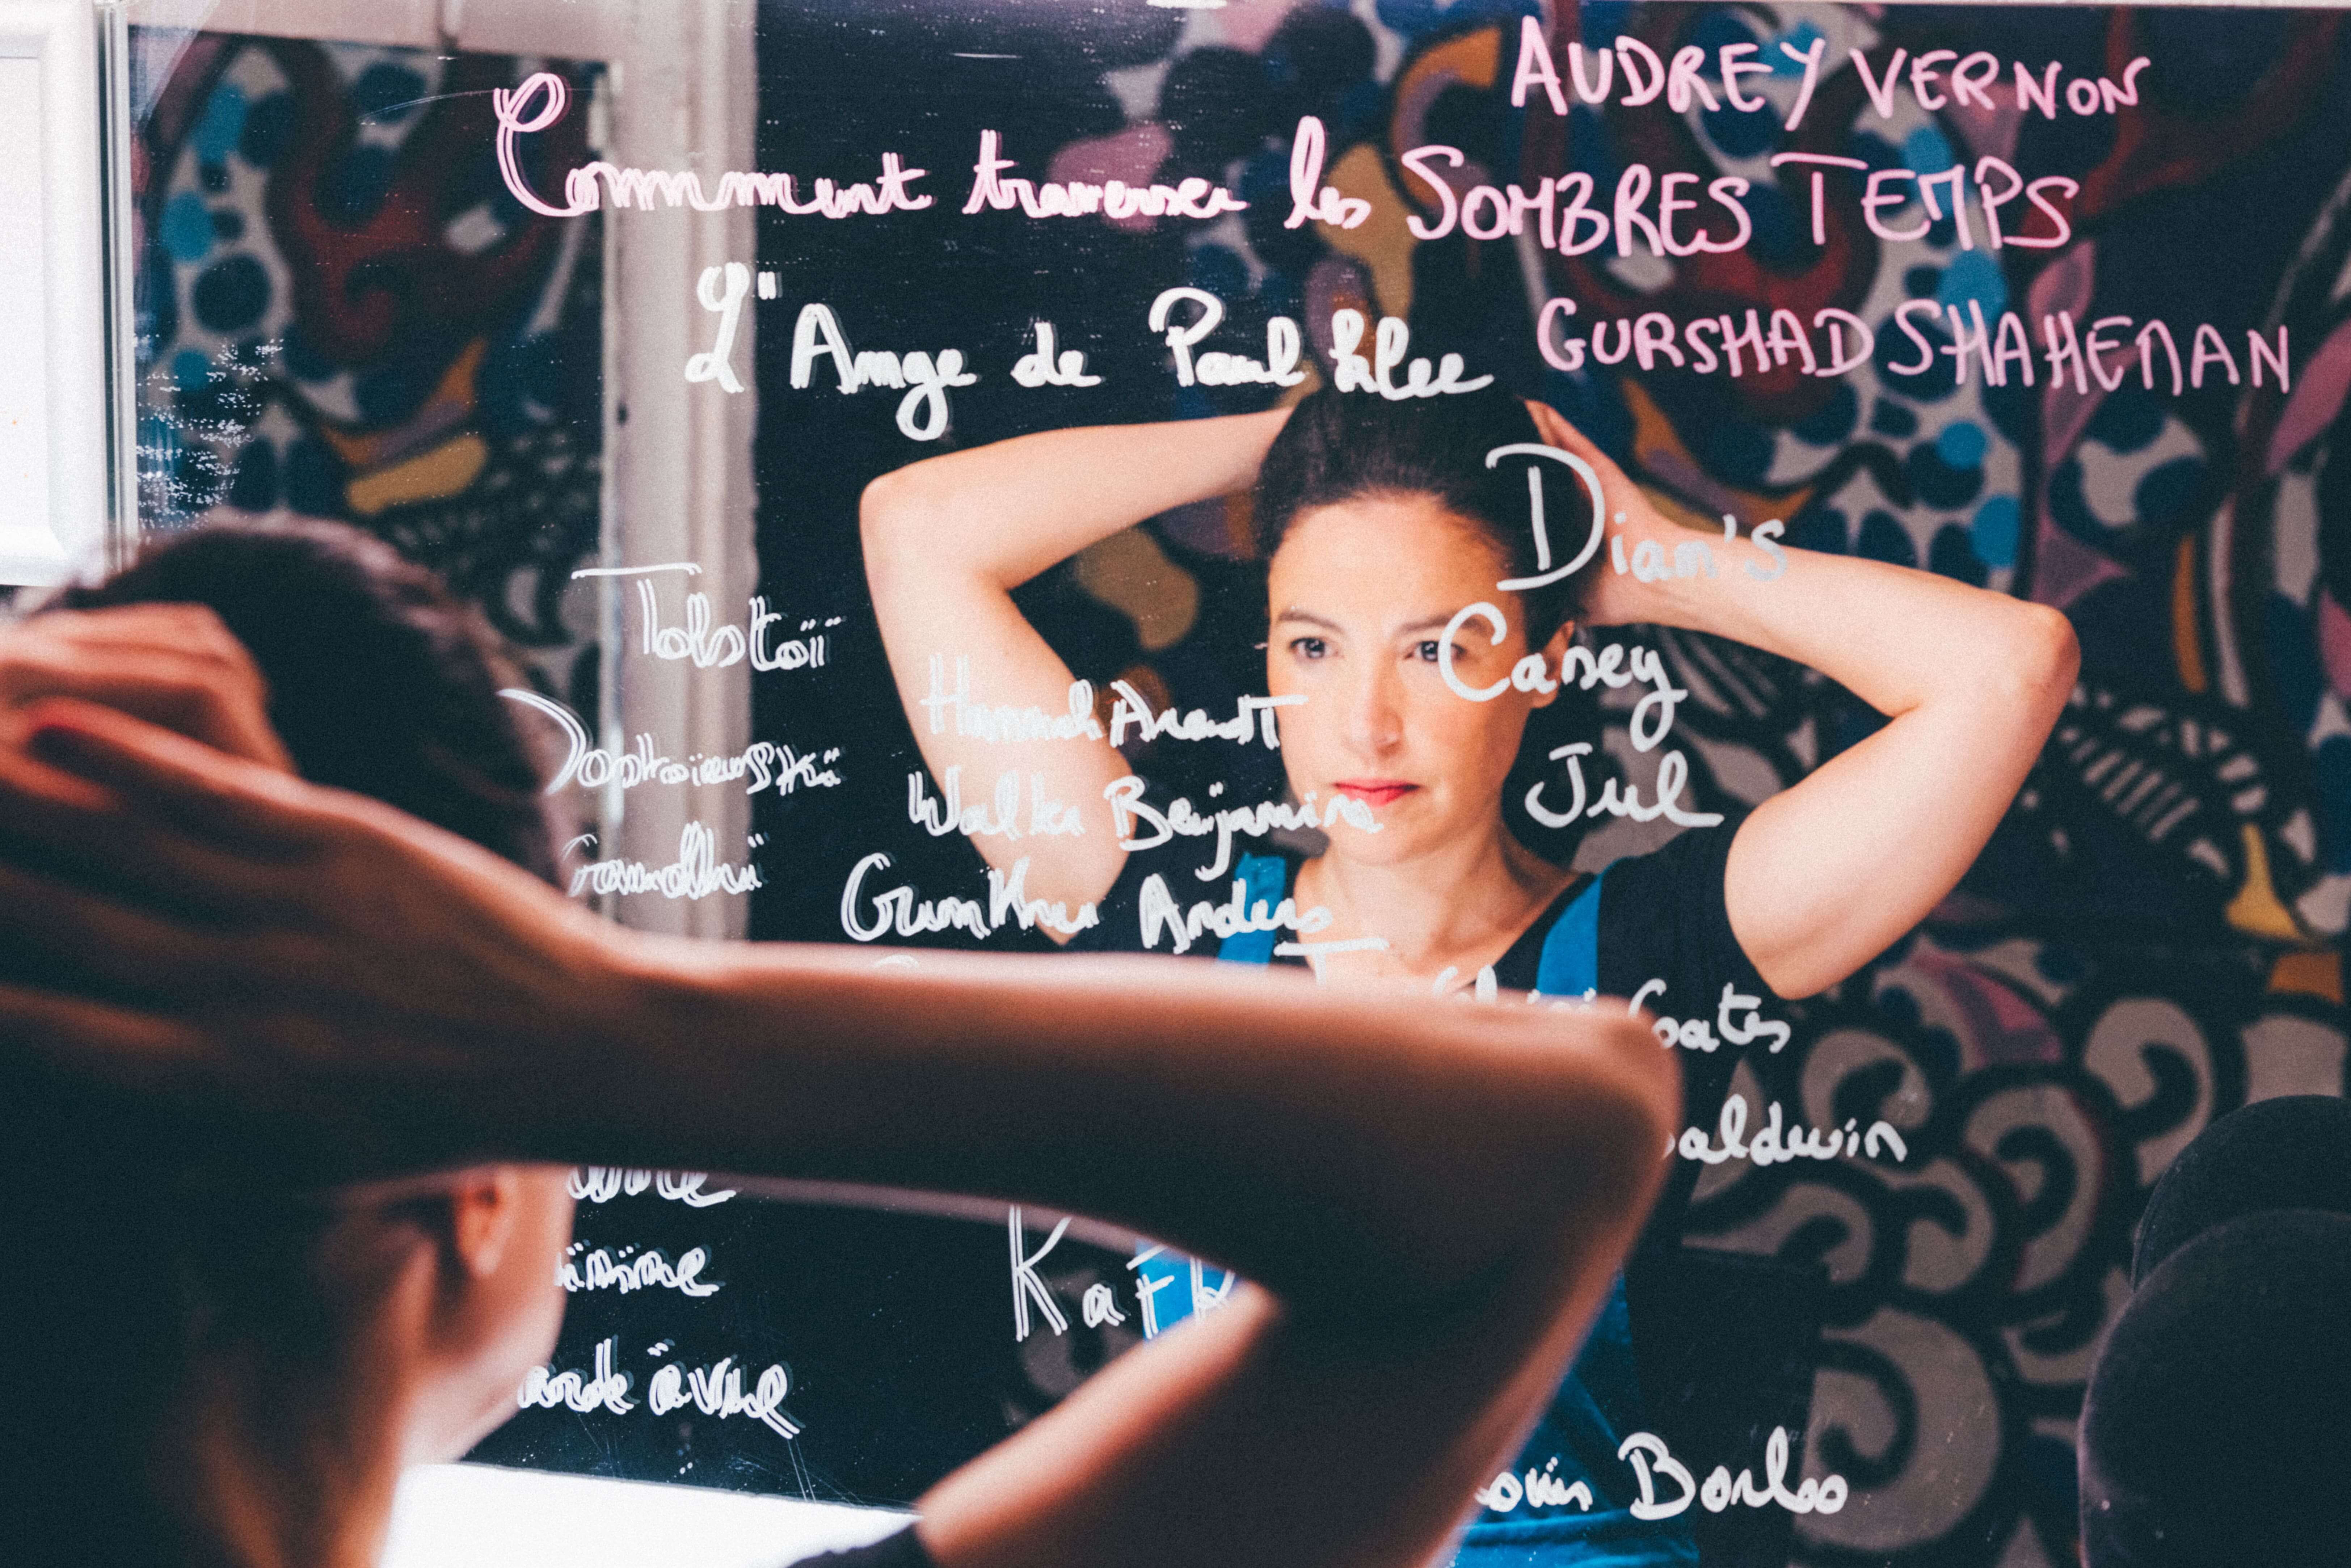 AUDREY VERNON
Comment traverser les SOMBRES TEMPS
L'Ange de Paul Klee
GURSHAD SHAHEMAN
Dian's
Tolstoï
Casey
Hannah Arendt
Dostoïewskï
Jul
Walter Benjamin
Gandhï
Gunther Anders
Coates
Baldwin
Kafk
Borloo